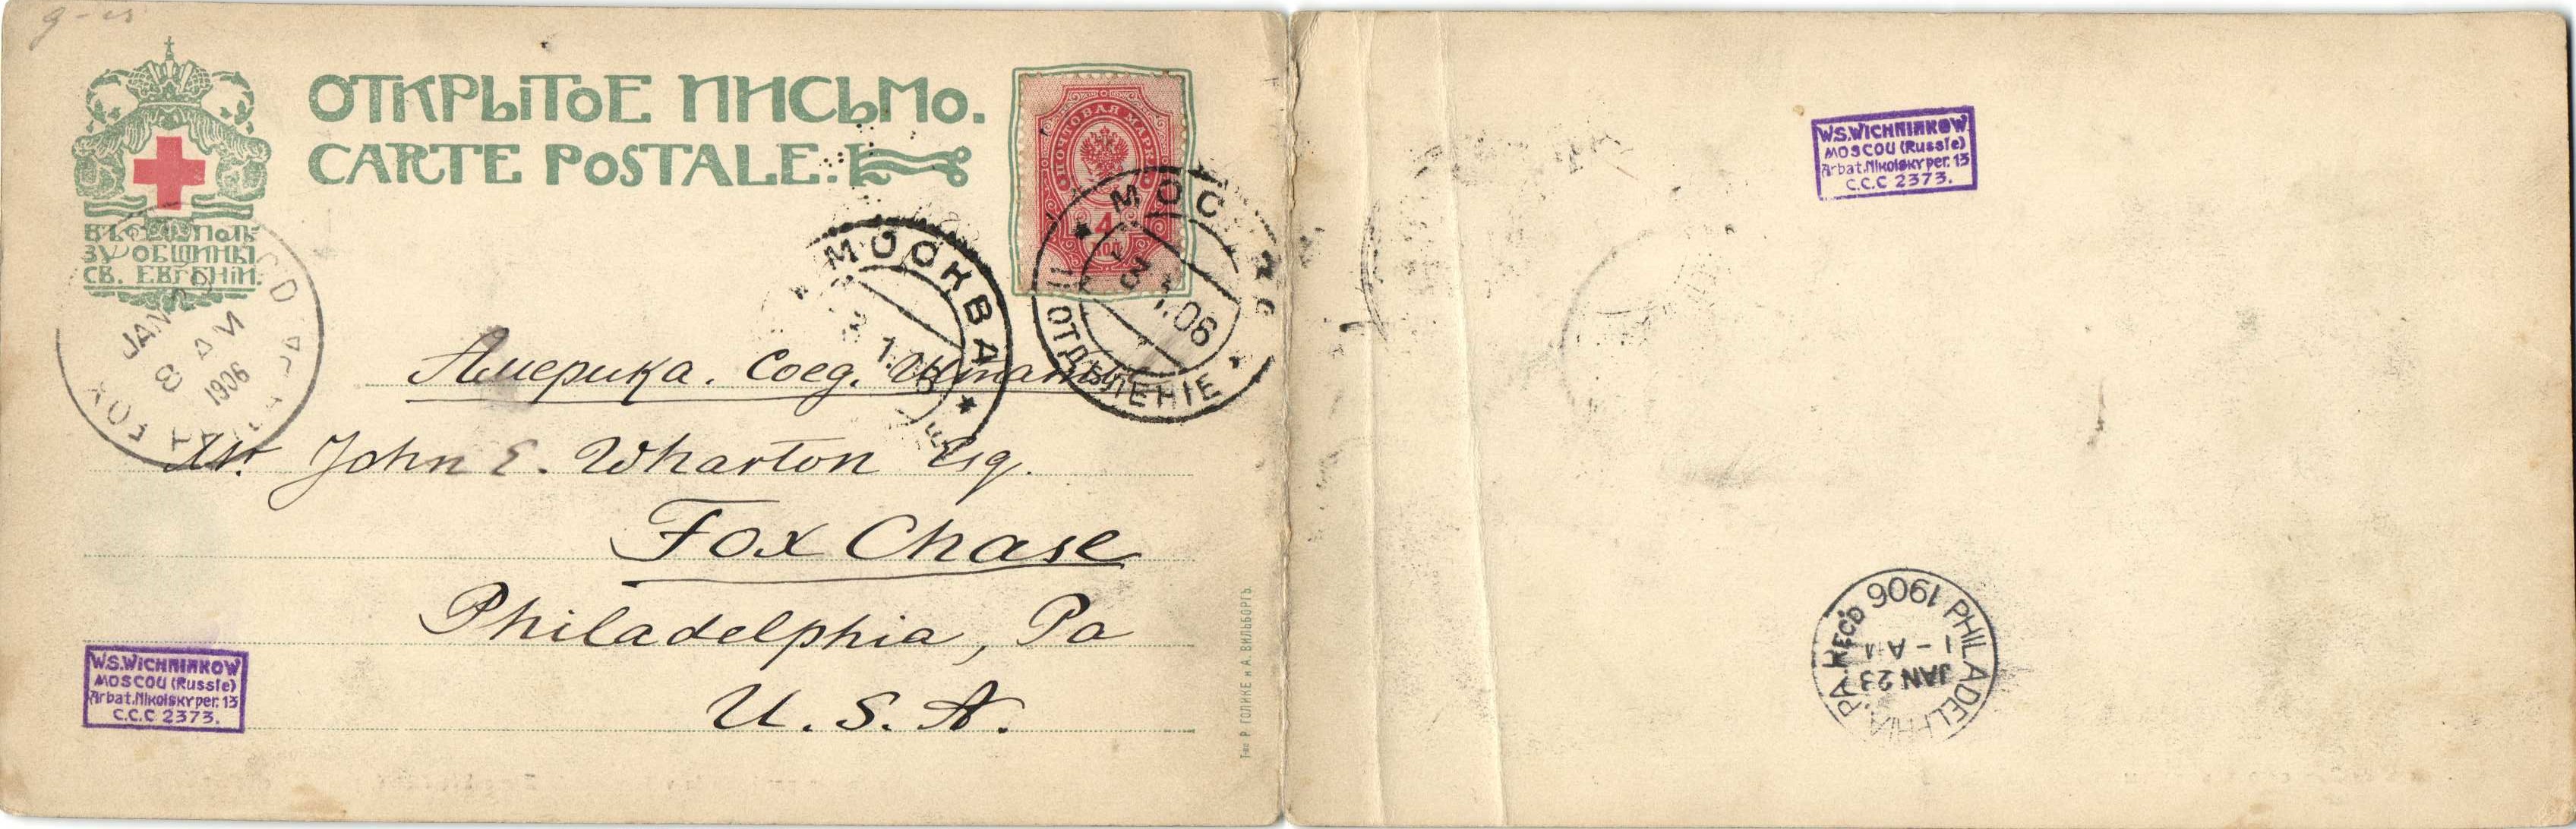 ОТКРЫТОЕ ПИСЬМО.
CARTE POSTALE:
ВЪ ПОЛЬ-
ЗУ ОБЩИНЫ
СВ. ЕВГЕНІИ.
ПОЧТОВАЯ МАРКА
4
КОП
МОСКВА
3 1.06
ОТДѢЛЕНІЕ
МОСКВА
1.06
REC'D
JAN
8 AM
1906
FOX
Америка. Соед. Штаты
Mr John E. Wharton Esq.
Fox Chase
Philadelphia, Pa
U. S. A.
W.S.WICHNIAKOW
MOSCOU (Russie)
Arbat.Nikolsky per. 13
C.C.C 2373.
Т-во Р. ГОЛИКЕ и А. ВИЛЬБОРГЪ.
W.S.WICHNIAKOW
MOSCOU (Russie)
Arbat.Nikolsky per. 13
C.C.C 2373.
PHILADELPHIA PA. REC'D 1906
JAN 23
1 - AM